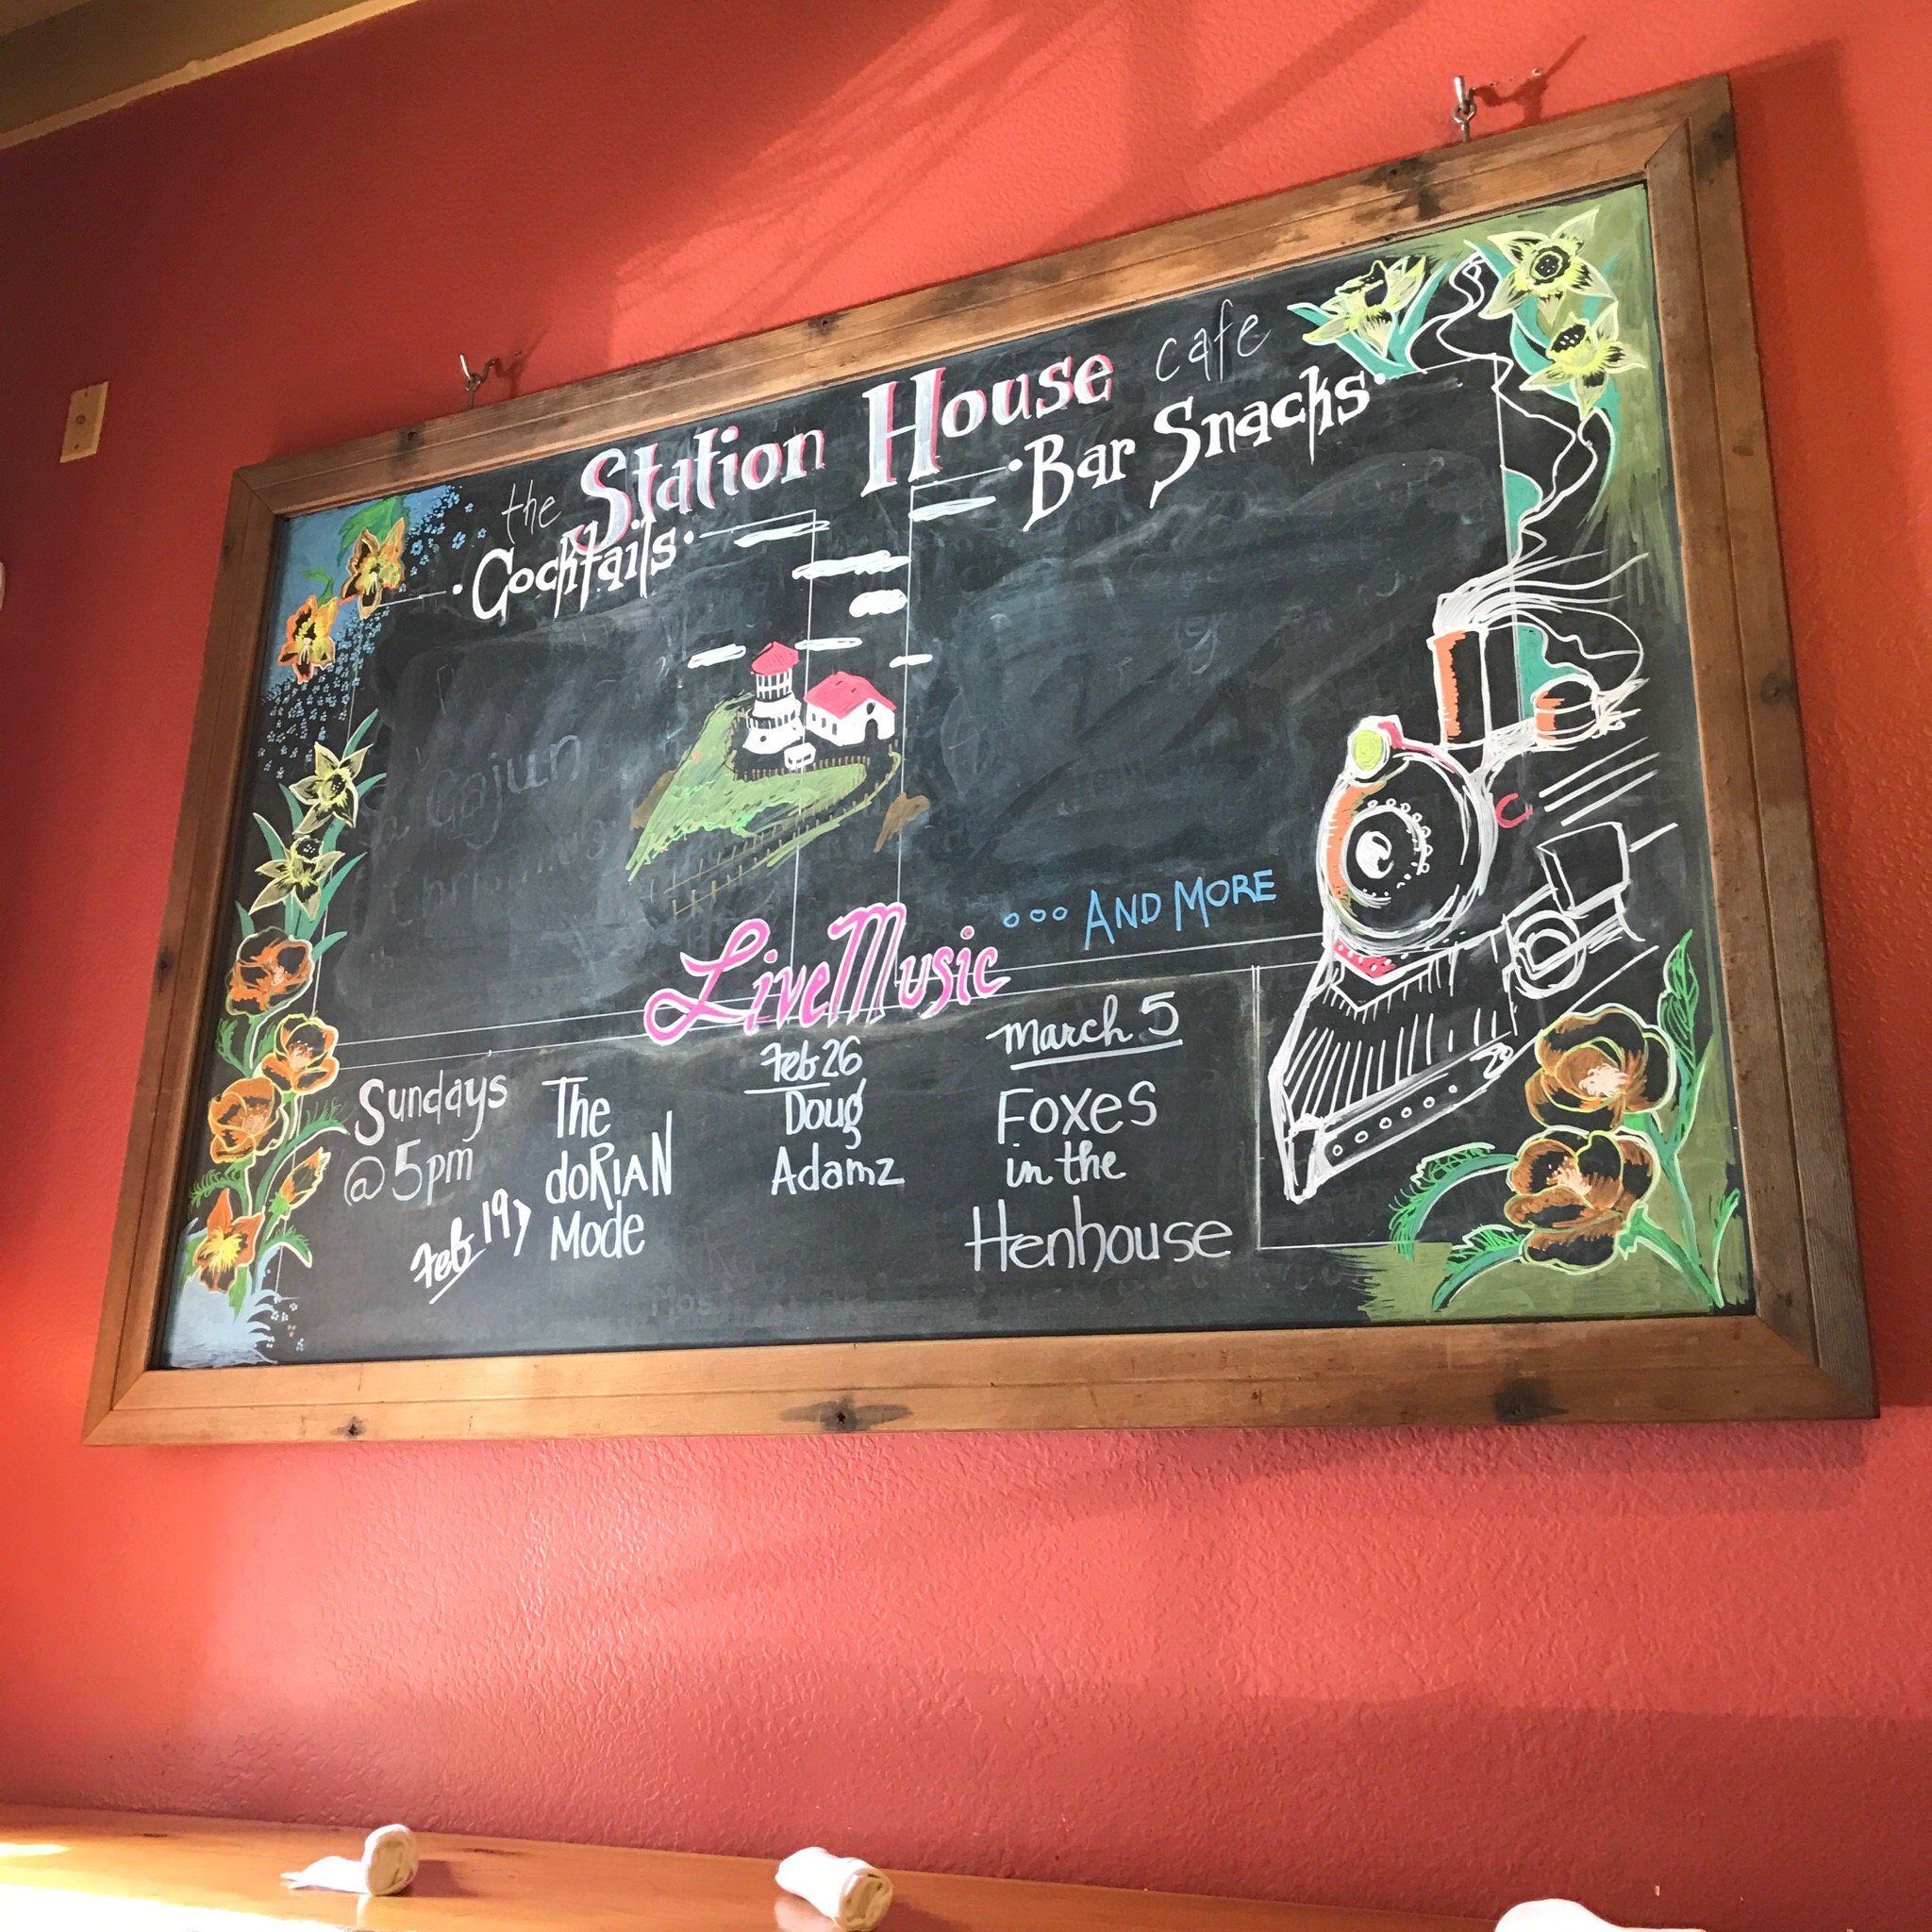 the Station House cafe
·Cocktails·
·Bar Snacks·
Live Music
ooo AND MORE
Sundays
@ 5pm
Feb 19>
The
doRIAN
Mode
Feb 26
Doug
Adamz
March 5
Foxes
in the
Henhouse
Cajun